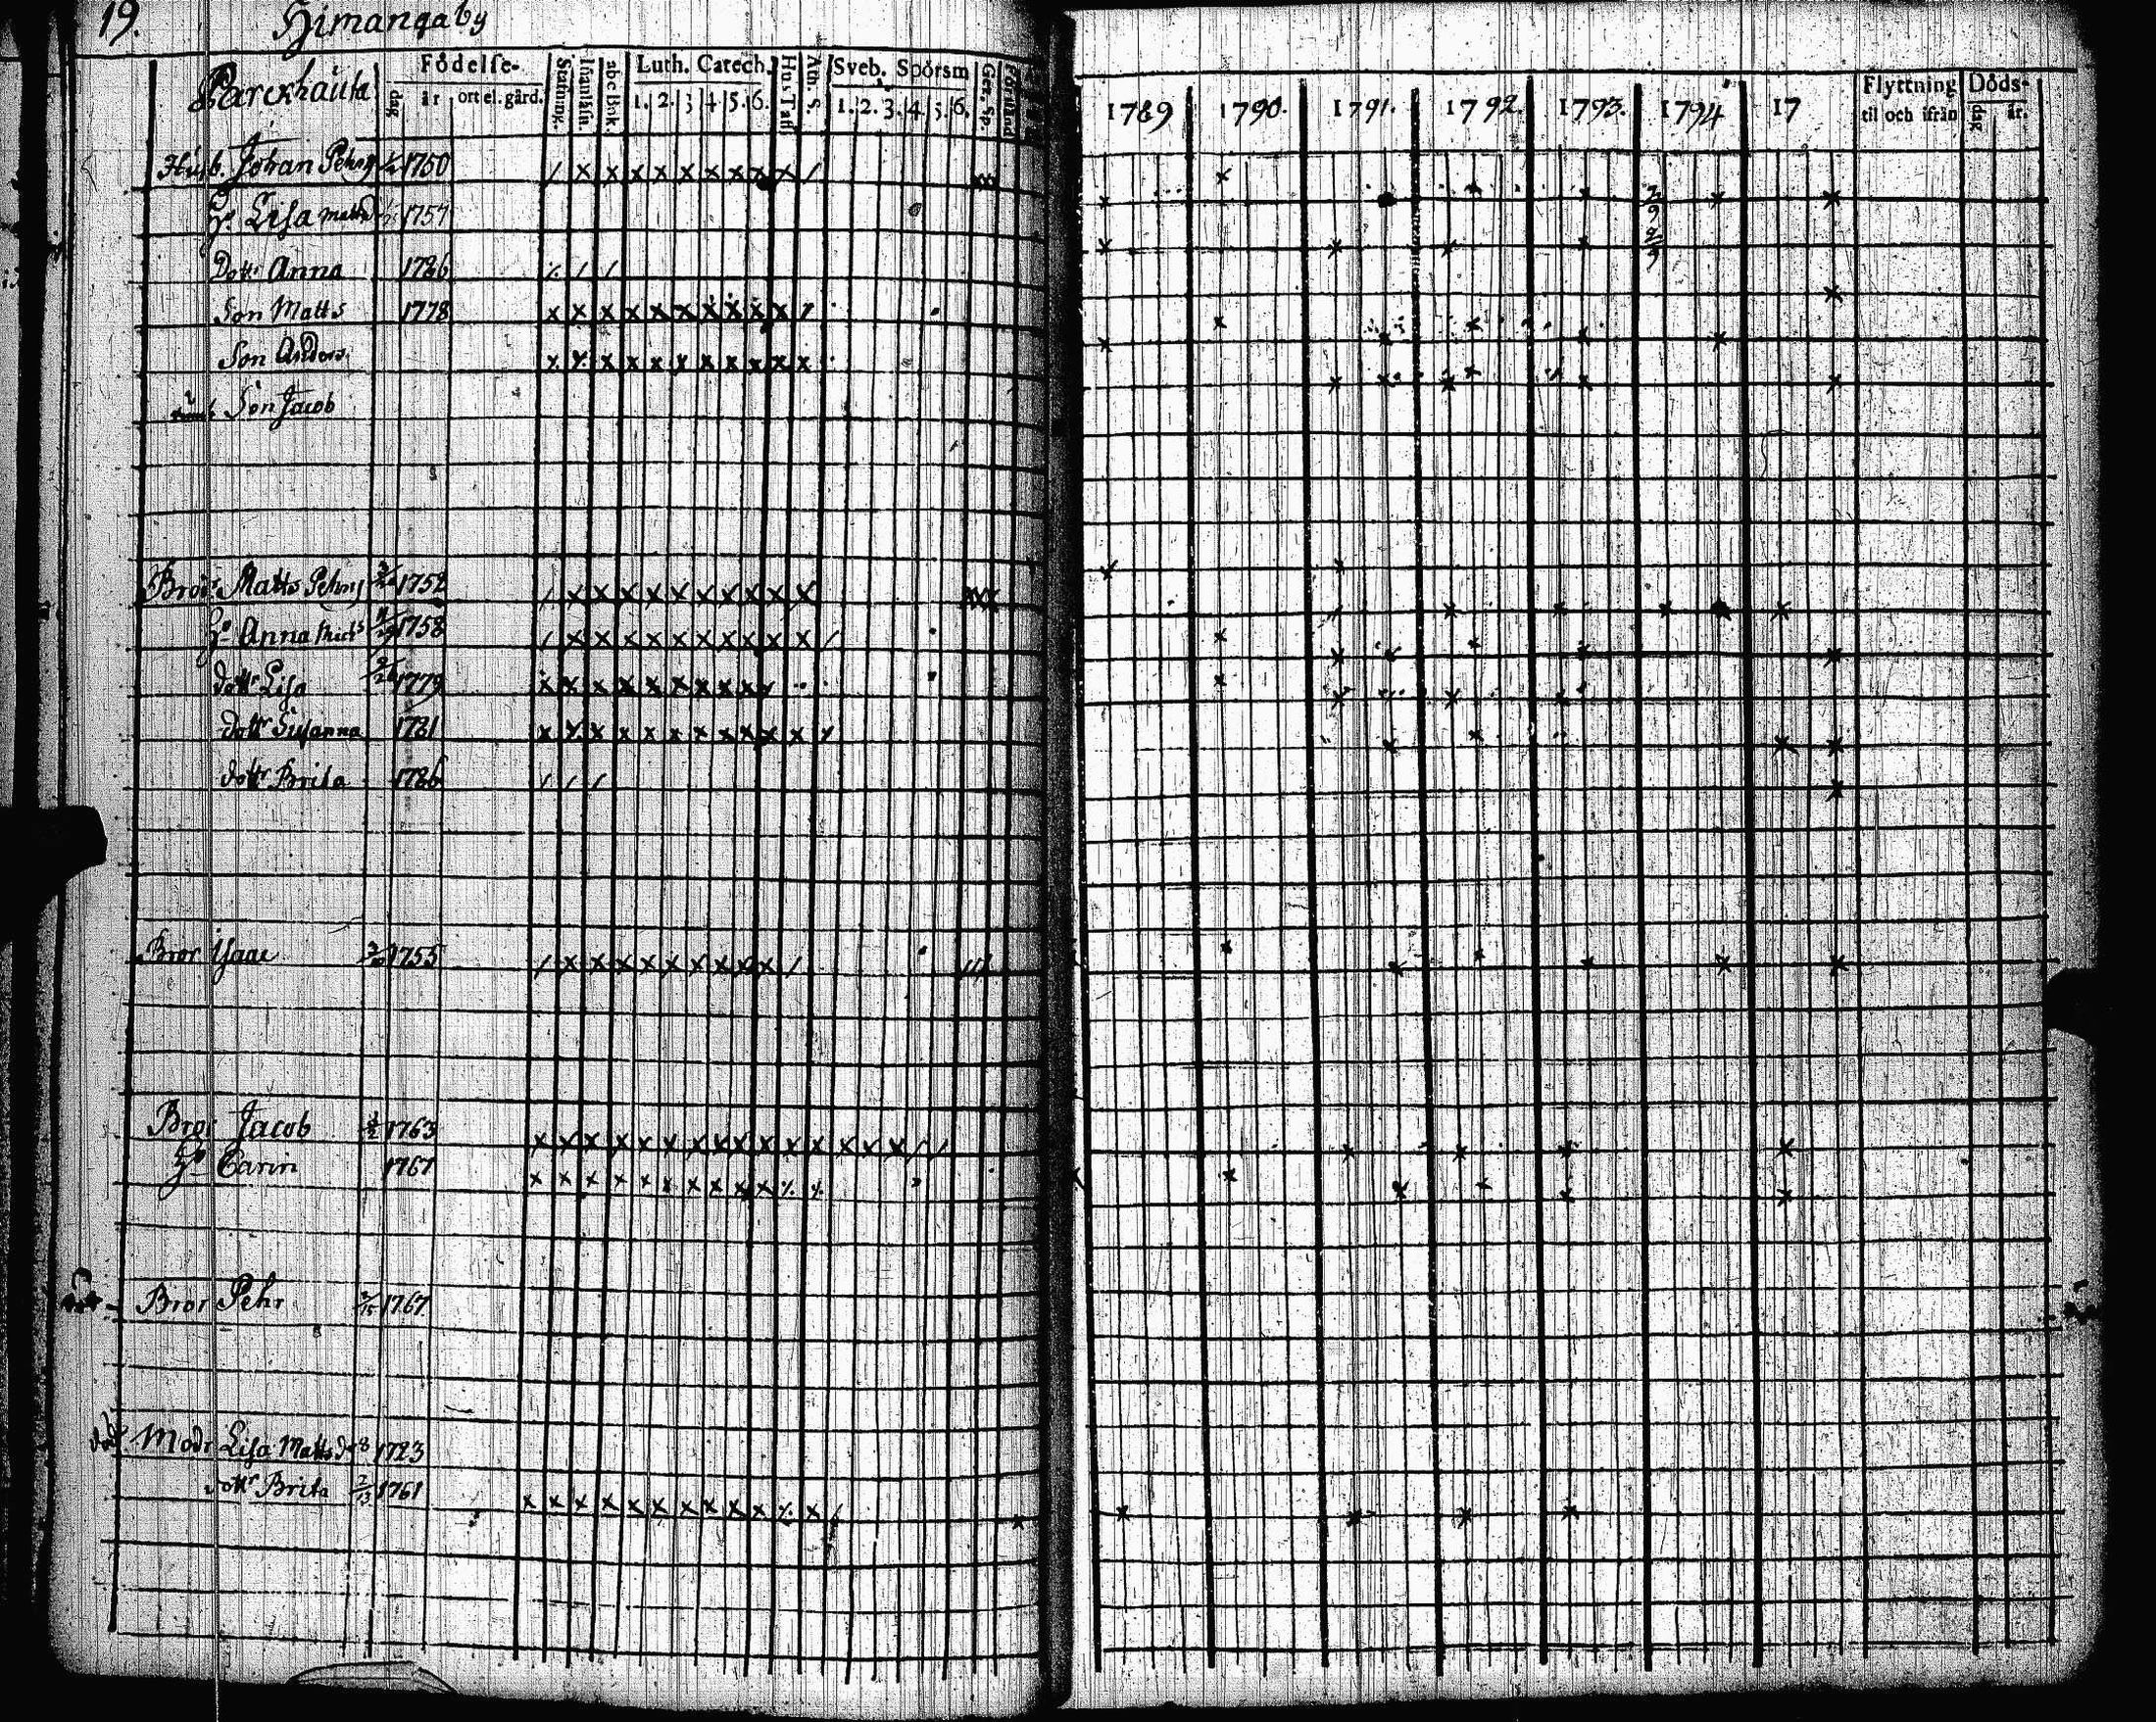 19. Himangaby
Parckhauta
Födelse-
dag år ort el. gård.
Stafning. Innanläsn. abc Bok. Luth. Catech. 1. 2. 3 4 5. 6. Hus Tafl. Ath. S. Sveb. Spörsm 1. 2. 3. 4. 5. 6. Gez. Sp.
1789 1790. 1791. 1792 1793. 1794 17
Flyttning til och ifrån
Döds- dag år.
Husb. Johan Pehrs 1750
H. Lisa Mattsd 1757
Dottr Anna 1786
Son Matts 1778
Son Anders
Son Jacob
Bror Matts Pehrs 1752
H. Anna Micls 1758
dottr Lisa 1779
dottr Susanna 1781
dottr Brita 1786
Bror Isaac 1755
Bror Jacob 1763
H. Carin 1767
Bror Pehr 3/15 1767
död Modr Lisa Mattsdr 1723
dottr Brita 1761